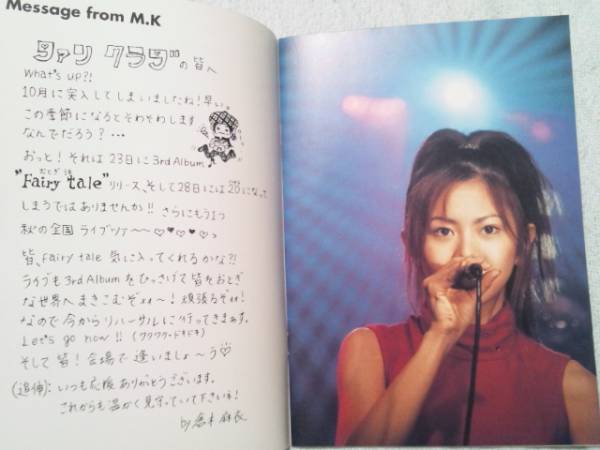 Message from M.K
の皆へ
What's up?!
10月に突入してしまいましたね!早い。
この季節になるとそわそわします
なんでだろう?・・・
おっと!それは23日に3rd Album
おとぎ話
"Fairy tale"リリース、そして28日には20になって
しまうではありませんか!!さらにもう1つ
秋の全国ライブツアー〜♡♥♡♥♡
皆、Fairy tale 気に入ってくれるかな?!
ライブも3rd Albumをひっさげて皆をおとぎ
な世界へまきこむぞォォ〜!頑張るぞォ!
なので今からリハーサルに行ってきまぁす。
Let's go now!!(ワクワクドキドキ)
そして皆!会場で逢いましょ〜う♡
(追伸)いつも応援ありがとうございます。
これからも温かく見守っていて下さいネ!
by 倉木麻衣